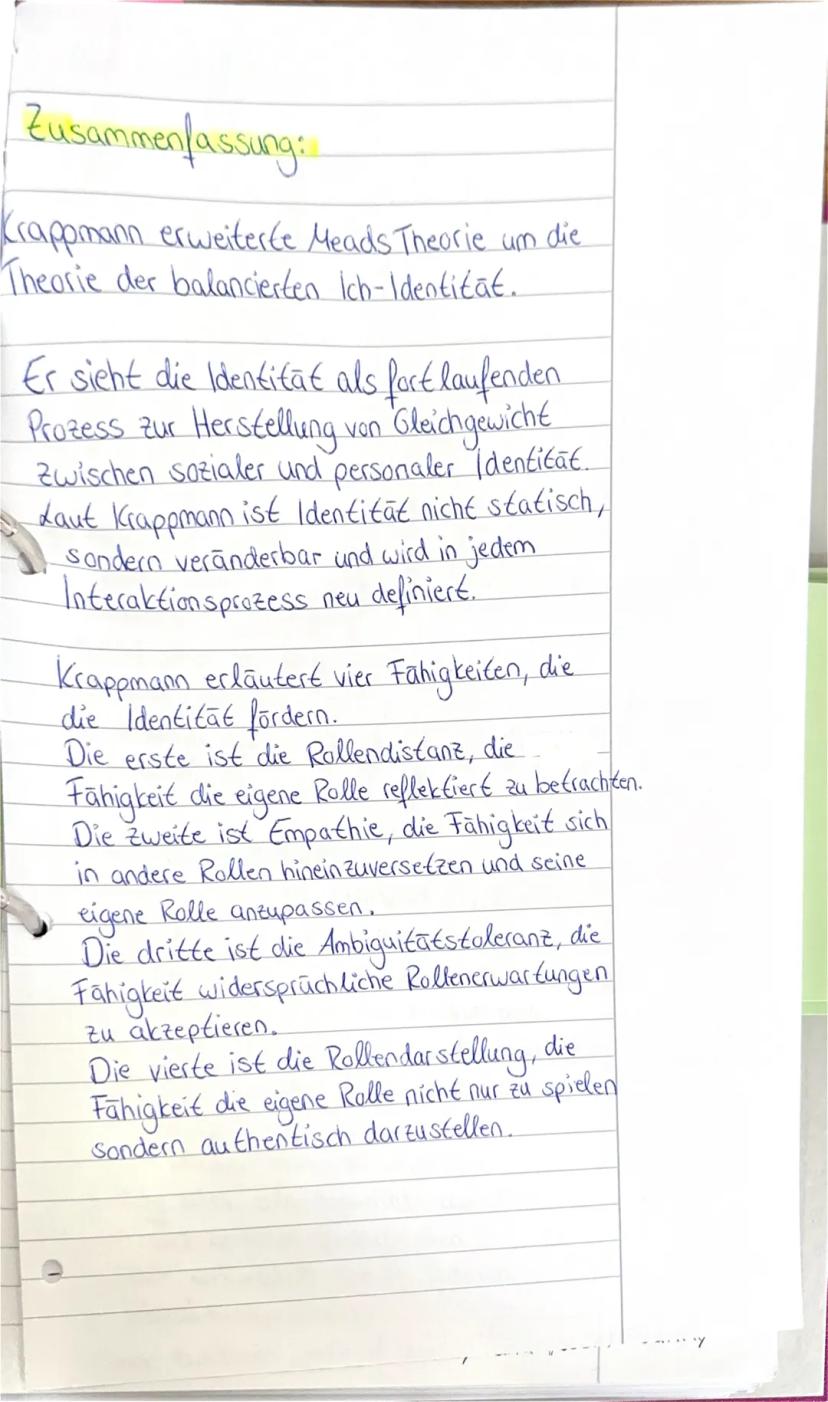 Zusammenfassung:
Krappmann erweiterte Meads Theorie um die
Theorie der balancierten Ich-Identität.
Er sieht die Identität als fortlaufenden
Prozess zur Herstellung von Gleichgewicht
zwischen sozialer und personaler Identität.
Laut Krappmann ist Identität nicht statisch,
sondern veränderbar und wird in jedem
Interaktionsprozess neu definiert.
Krappmann erläutert vier Fähigkeiten, die
die Identität fördern.
Die erste ist die Rollendistanz, die
Fähigkeit die eigene Rolle reflektiert zu betrachten.
Die zweite ist Empathie, die Fähigkeit sich
in andere Rollen hineinzuversetzen und seine
eigene Rolle anzupassen.
Die dritte ist die Ambiguitätstoleranz, die
Fähigkeit widersprüchliche Rollenerwartungen
zu akzeptieren.
Die vierte ist die Rollendarstellung, die
Fähigkeit die eigene Rolle nicht nur zu spielen
sondern authentisch darzustellen.